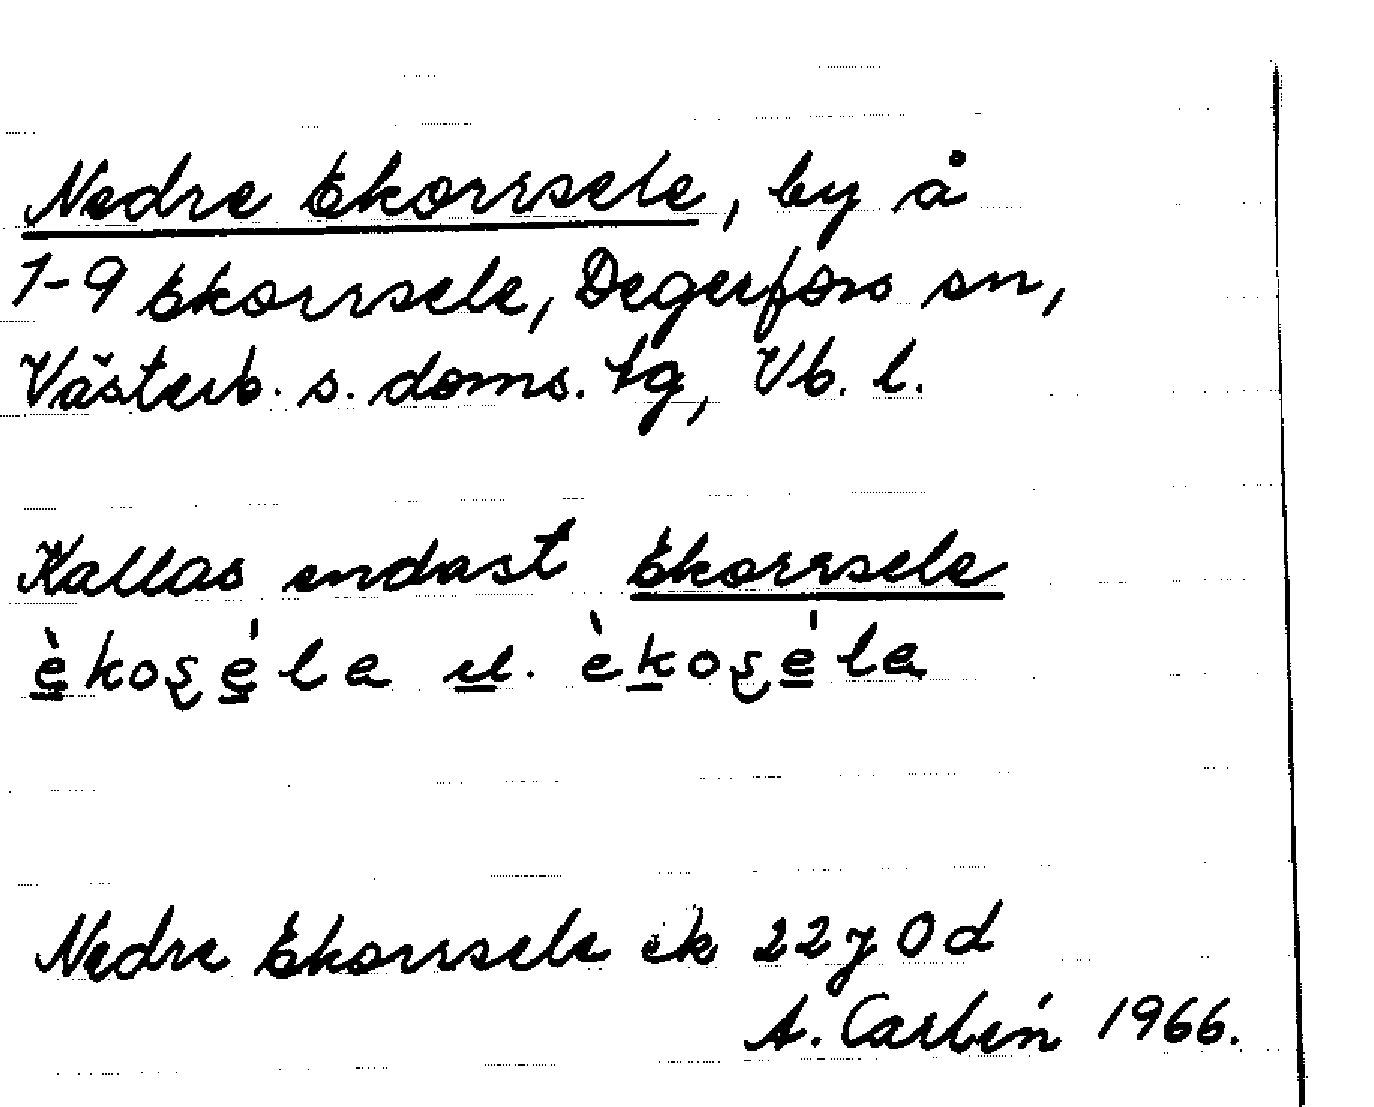 Nedre Ekorrsele, by å
1-9 Ekorrsele, Degerfors sn,
Västerb. s. doms. tg, Vb. l.
Kallas endast Ekorrsele
èkoşéla el. èkoşéla
Nedre Ekorrsele ek 22 J 0 d
A. Carlén 1966.